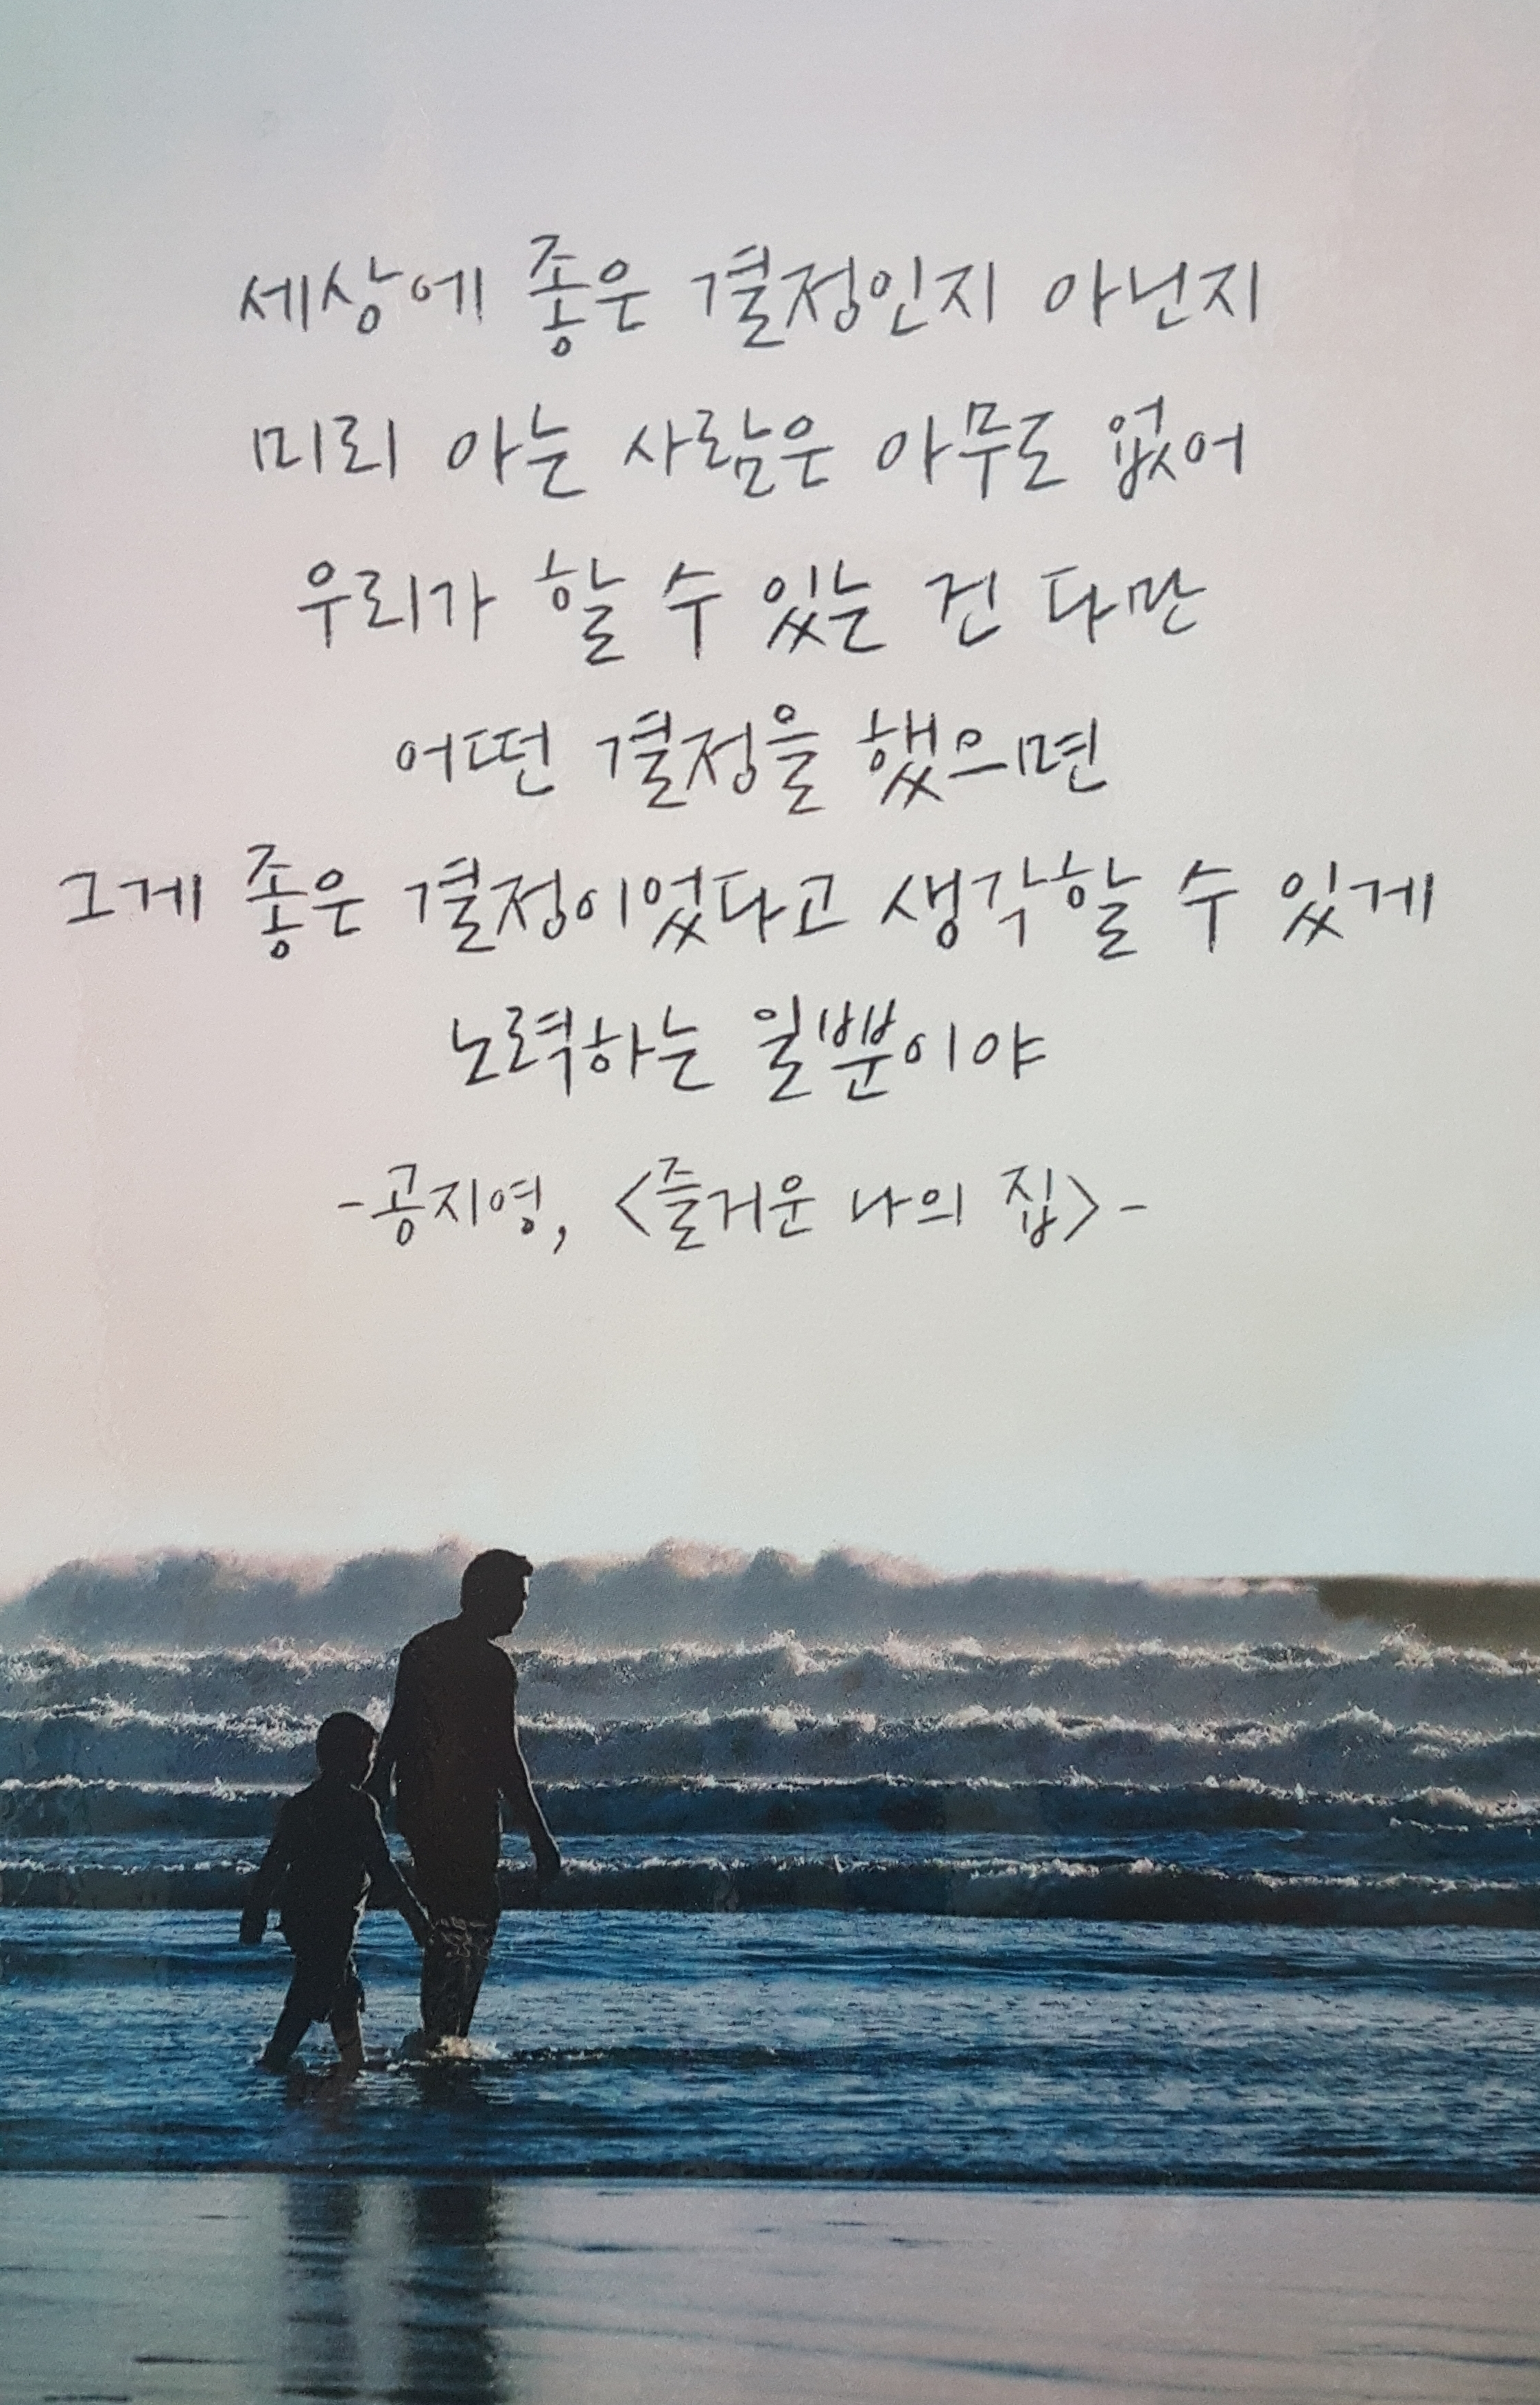 세상에 좋은 결정인지 아닌지
미리 아는 사람은 아무도 없어
우리가 할 수 있는 건 다만
어떤 결정을 했으면
그게 좋은 결정이었다고 생각할 수 있게
노력하는 일뿐이야
-공지영, <즐거운 나의 집>-